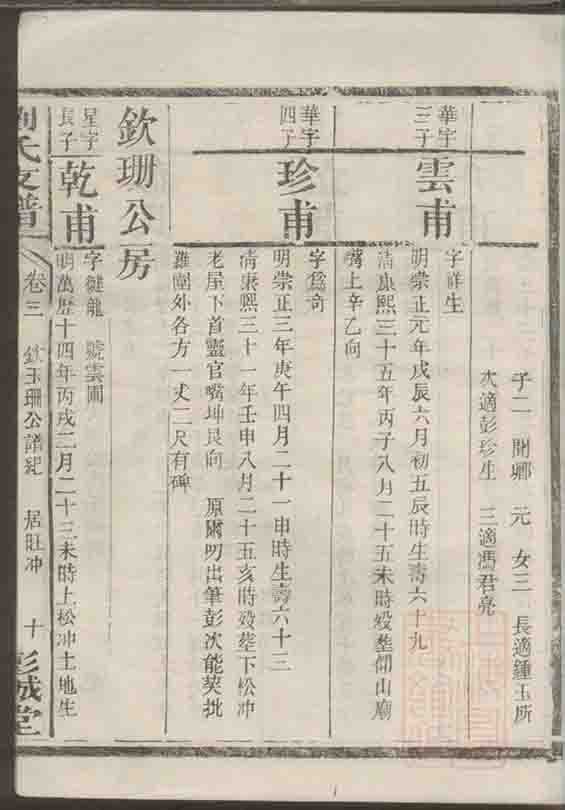 子二 開卿 元 女三 長適鍾玉所
次適彭珍生 三適馮君亮
華字三子
雲甫
字祥生
明崇正元年戊辰六月初五辰時生壽六十九
清康熙三十五年丙子八月二十五未時殁塟仰山廟
嘴上辛乙向
華字四子
珍甫
字為奇
明崇正三年庚午四月二十一申時生壽六十三
清康熙三十一年壬申八月二十五亥時殁塟下松冲
老屋下首靈官嘴坤艮向 原爾明出筆彭次能契批
離圍外各方一丈二尺有碑
欽珊公房
星字長子
乾甫
字健龍 號雲圃
明萬歷十四年丙戌二月二十三未時上松冲土地生
劉氏支譜 卷三 欽玉珊公譜紀 居旺冲 十 彭城堂